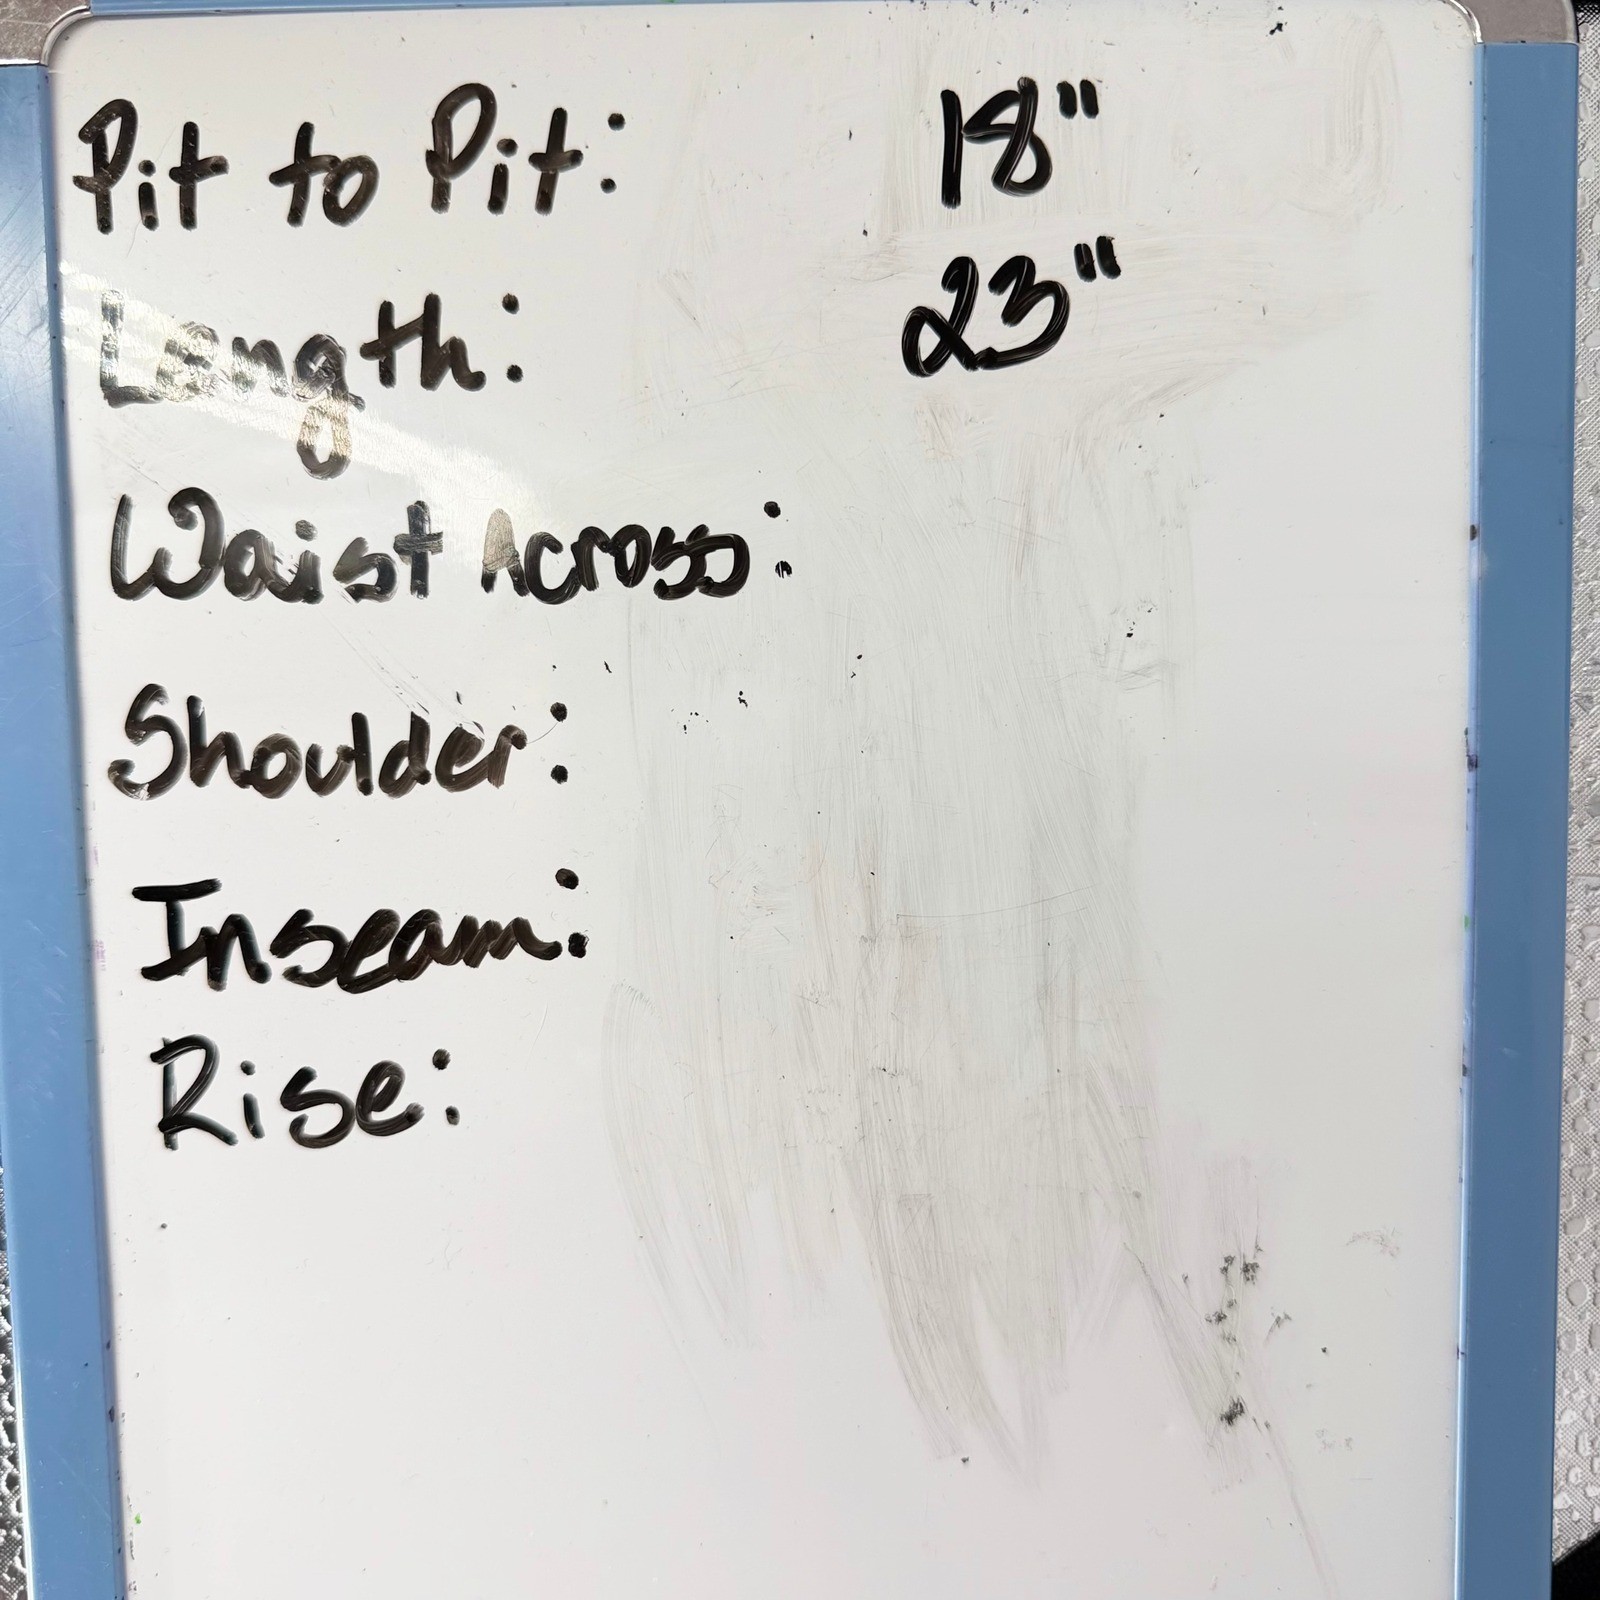 Pit to Pit: 18"
Length: 23"
Waist Across:
Shoulder:
Inseam:
Rise: